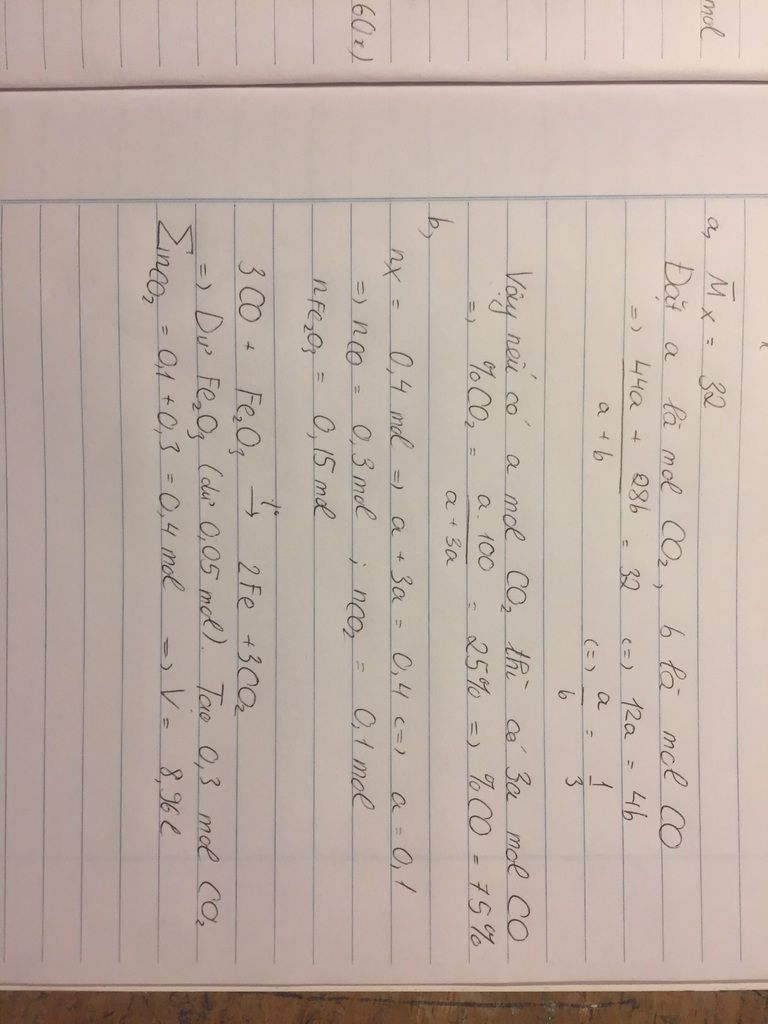 mol
6(Ox)
a, M̅x = 32
Đặt a là mol CO₂, b là mol CO
=> (44a + 28b)/(a + b) = 32 <=> 12a = 4b
<=> a/b = 1/3
Vậy nếu có a mol CO₂ thì có 3a mol CO
=> %CO₂ = (a.100)/(a + 3a) = 25% => %CO = 75%
b,
nx = 0,4 mol => a + 3a = 0,4 <=> a = 0,1
=> nCO = 0,3 mol ; nCO₂ = 0,1 mol
nFe₂O₃ = 0,15 mol
3CO + Fe₂O₃ –t°→ 2Fe + 3CO₂
=> Dư Fe₂O₃ (dư 0,05 mol). Tạo 0,3 mol CO₂
∑nCO₂ = 0,1 + 0,3 = 0,4 mol => V = 8,96l